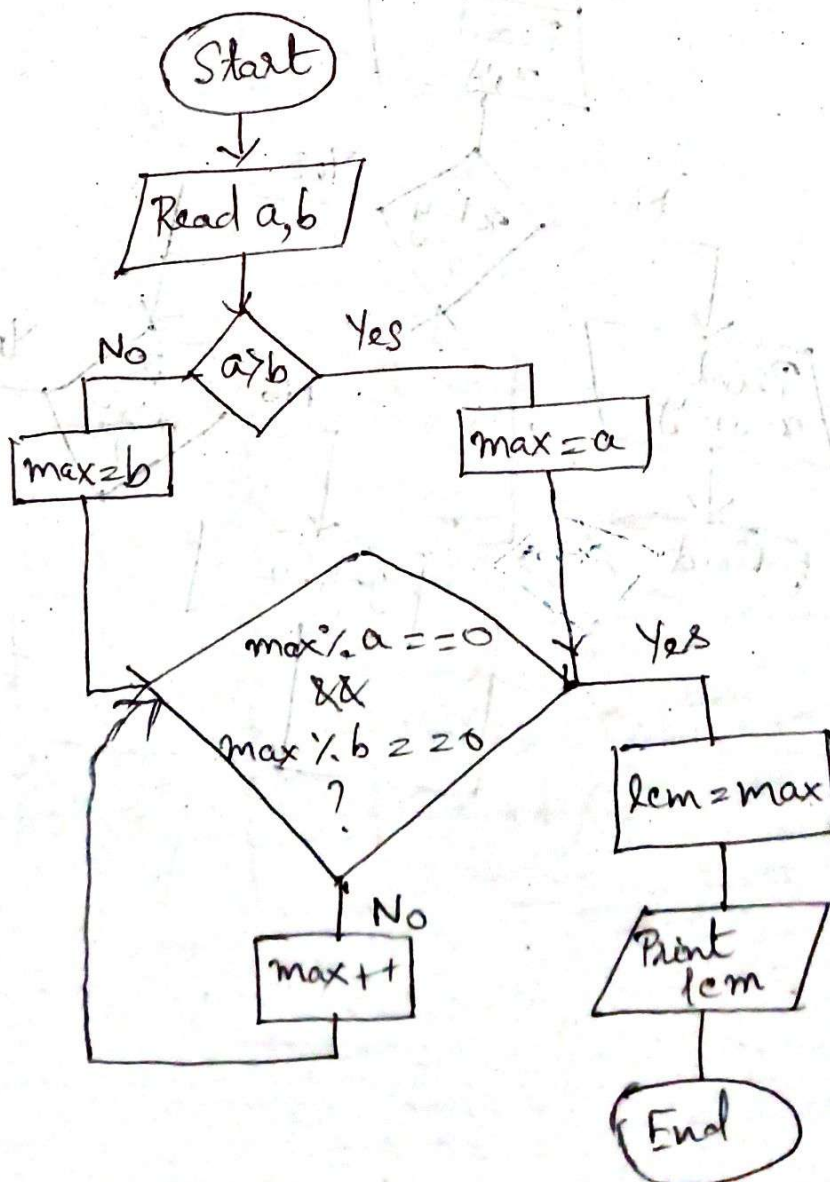 Start
Read a,b
a>b
No
Yes
max=b
max=a
max%a==0
&&
max%b==0
?
Yes
No
max++
lcm=max
Print
lcm
End